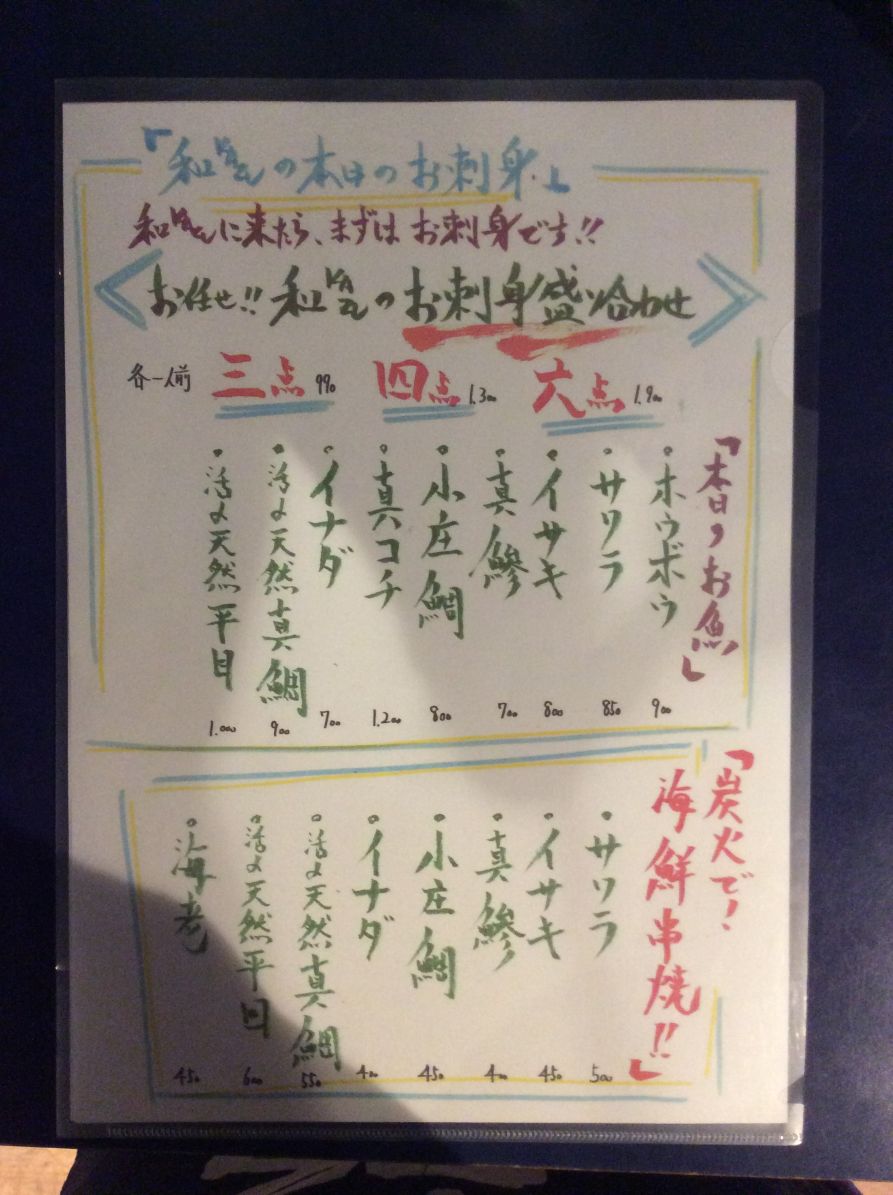 の本日のお刺身」
に来たら、まずはお刺身です!!
お任せ!!
のお刺身盛り合わせ
各一人前 三点 990 四点 1.300 六点 1.900
「本日のお魚」
・ホウボウ 900
・サワラ 850
・イサキ 800
・真鯵 700
・小庄鯛 800
・真コチ 1.200
・イナダ 700
・活〆天然真鯛 900
・活〆天然平目 1.000
「炭火で!
海鮮串焼!!」
・サワラ 500
・イサキ 450
・真鯵 400
・小庄鯛 450
・イナダ 400
・活〆天然真鯛 550
・活〆天然平目 600
・海老 450